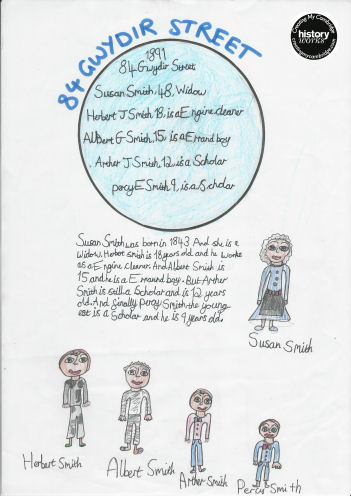 84 GWYDIR STREET
Creating My Cambridge
history
WORKS
creatingmycambridge.com
1891
84 Gwydir Street
Susan Smith, 48, Widow
Herbert J Smith, 18, is a Engine cleaner
Albert G Smith, 15, is a Errand boy
Arther J Smith, 12, is a Scholar
percy E Smith 9, is a Scholar
Susan Smith was born in 1843 And she is a
Widow. Herbert smith is 18 years old and he works
as a Engine Cleaner. And Albert Smith is
15 and he is a Errand boy. But Arther
Smith is still a Scholar and is 12 years
old. And finally Percy Smith the young
est is a Scholar and he is 9 years old.
Susan Smith
Herbert Smith
Albert Smith
Arther Smith
Percy Smith